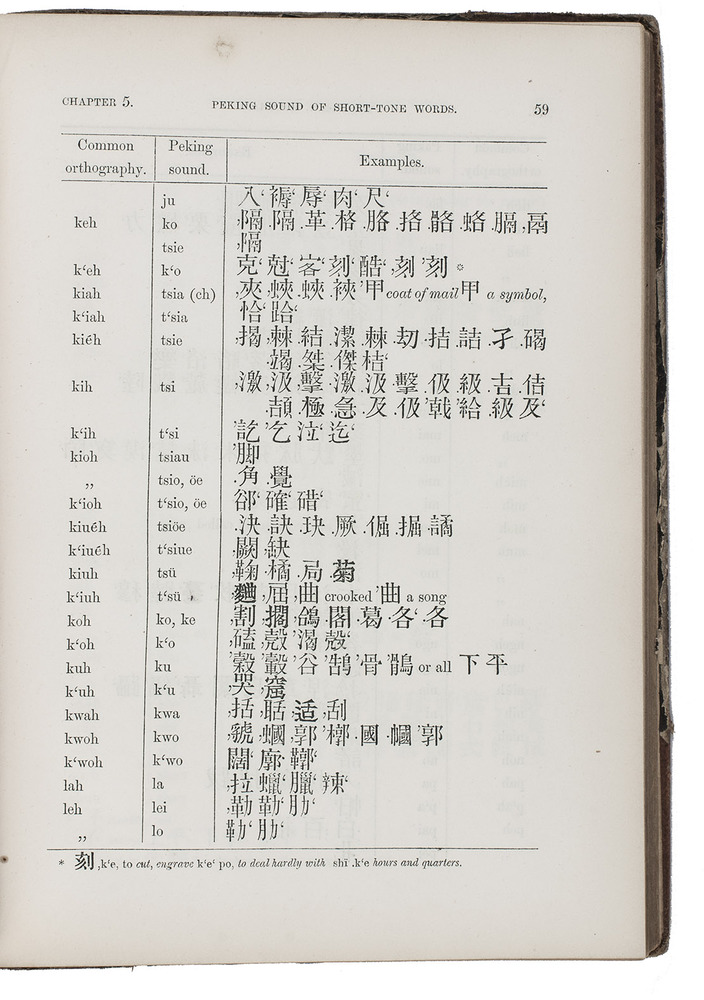 CHAPTER 5. PEKING SOUND OF SHORT-TONE WORDS. 59
Common orthography. Peking sound. Examples.
ju 入‘ 褥‘ 辱‘ 肉‘ 尺‘
keh ko ,隔 .隔 .革 .格 .胳 .挌 .骼 .蛒 .膈 ,鬲
tsie ,隔
k‘eh k‘o 克‘ 尅‘ 客‘ 刻‘ 酷‘ ,刻 ’刻 *
kiah tsia (ch) ,夾 ,蛺 .蛺 .裌 ’甲 coat of mail 甲‘ a symbol,
k‘iah t‘sia 恰‘ 跲‘
kiéh tsie ,揭 ,棘 .結 .潔 .棘 .刧 .拮 .詰 .孑 .碣
.竭 .桀 .傑 桔‘
kih tsi ,激 ,汲 ,擊 .激 .汲 .擊 .伋 .級 .吉 .佶
.頡 .極 .急 .及 .伋 ’戟 ’給 .級 及‘
k‘ih t‘si ’訖 ’乞 泣‘ 迄‘
kioh tsiau ’脚
„ tsio, öe .角 .覺
k‘ioh t‘sio, öe 郤‘ 確‘ 碏‘
kiuéh tsiöe .決 .訣 .玦 .厥 .倔 .掘 .譎
k‘iuéh t‘siue ,闕 ,缺
kiuh tsü ,鞠 .橘 .局 .菊
k‘iuh t‘sü ,屈 ,曲 crooked ’曲 a song
koh ko, ke ,割 ,擱 ,鴿 .閣 .葛 .各‘ .各
k‘oh k‘o ,磕 ,殼 ’渴 殼‘
kuh ku ’穀 ’轂 ’谷 ’鵠 ’骨 ’鶻 or all 下平
k‘uh k‘u ,哭 ,窟
kwah kwa ,括 ,聒 ,适 ,刮
kwoh kwo ,虢 ,蟈 ,郭 ’槨 .國 .幗 ’郭
k‘woh k‘wo 闊‘ 廓‘ 鞹‘
lah la ,拉 蠟‘ 臘‘ 辣‘
leh lei ,勒 勒‘ 肋‘
„ lo 勒‘ 肋‘
* 刻 ,k‘e, to cut, engrave k‘e‘ po, to deal hardly with shī .k‘e hours and quarters.